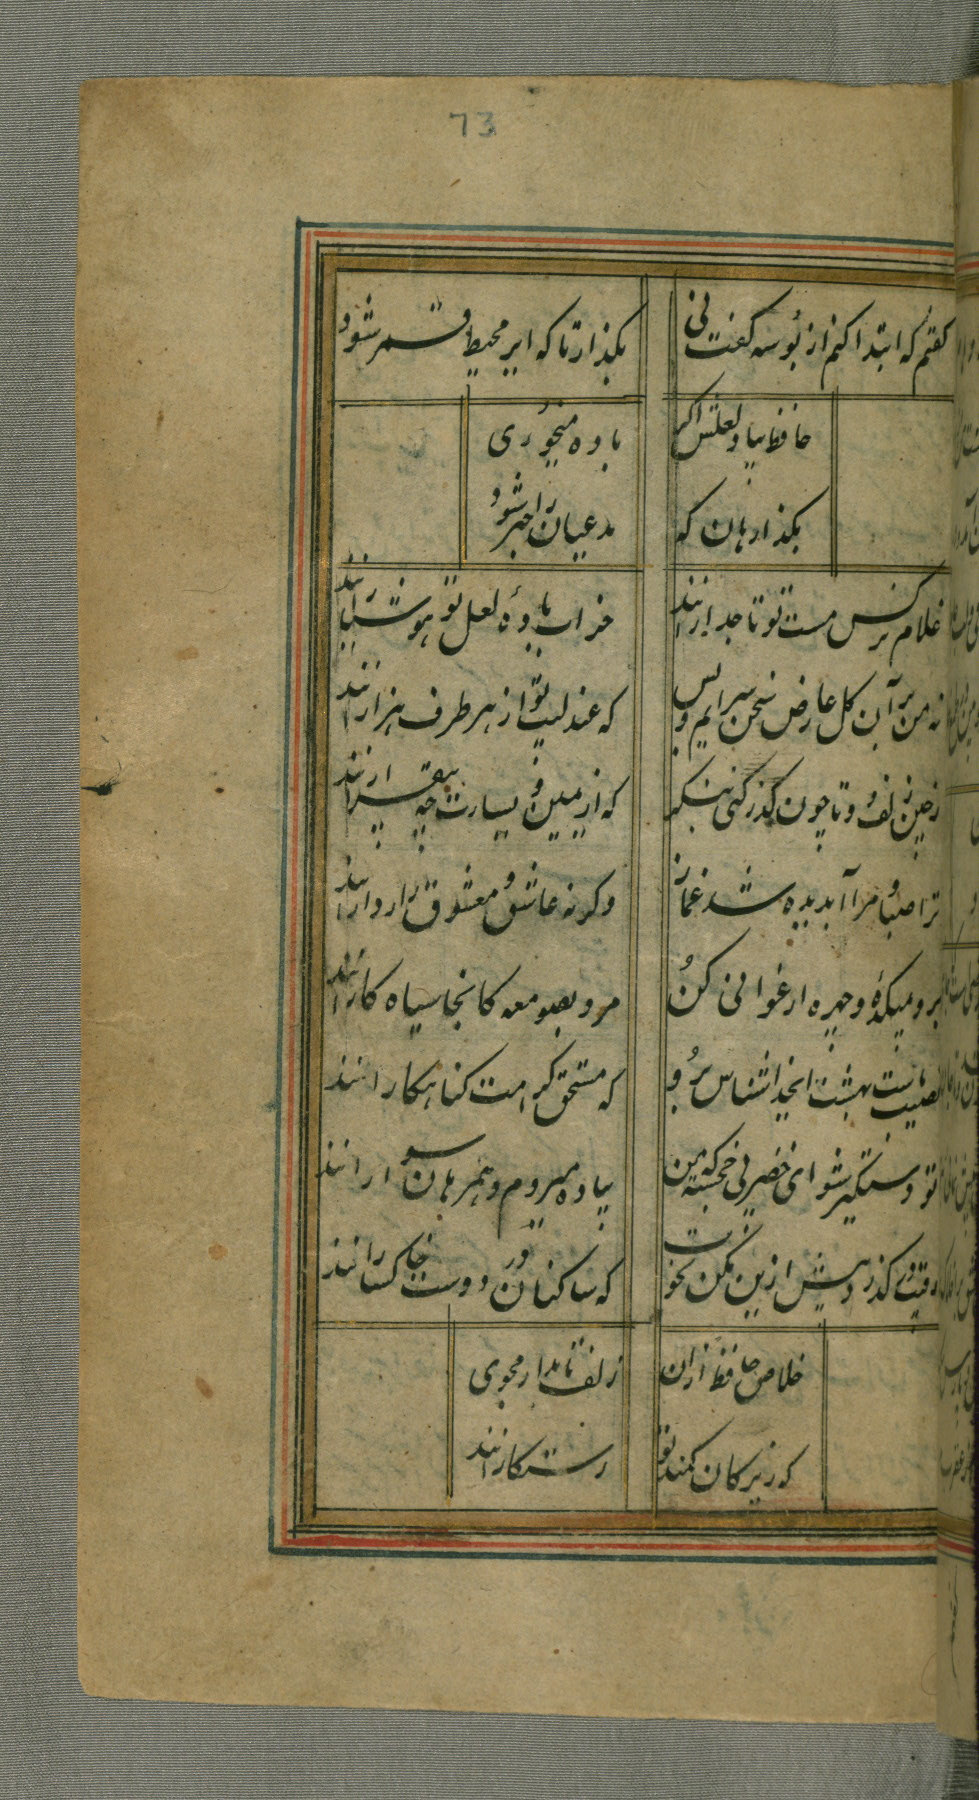 73
گفتم که ابتدا کنم از بوسه گفت نی
بگذار تا که ابر محیط قمر شود
حافظ بیاد لعلش اگر
باده میخوری
بگذار هان که
مدعیان را خبر شود
غلام نرگس مست تو تاجدارانند
خراب بادهٔ لعل تو هوشیارانند
نه من بر آن گل عارض سخن سرایم و بس
که عندلیب تو از هر طرف هزارانند
ز چین زلف دوتا چون گذر کنی بنگر
که از یمین و یسارت چه بیقرارانند
ترا صبا و مرا آب دیده شد غماز
وگرنه عاشق و معشوق رازدارانند
برو میکده و چهره ارغوانی کن
مرو بصومعه کانجا سیاه کارانند
نصیب ماست بهشت ای خداشناس برو
که مستحق کرامت گناهکارانند
تو دستگیر شو ای خضر پی خجسته که من
پیاده میروم و همرهان سوارانند
که ساکنان در دوست خاکسارانند
خلاص حافظ ازان
زلف تابدار مجوی
که
کمند تو
رستگارانند